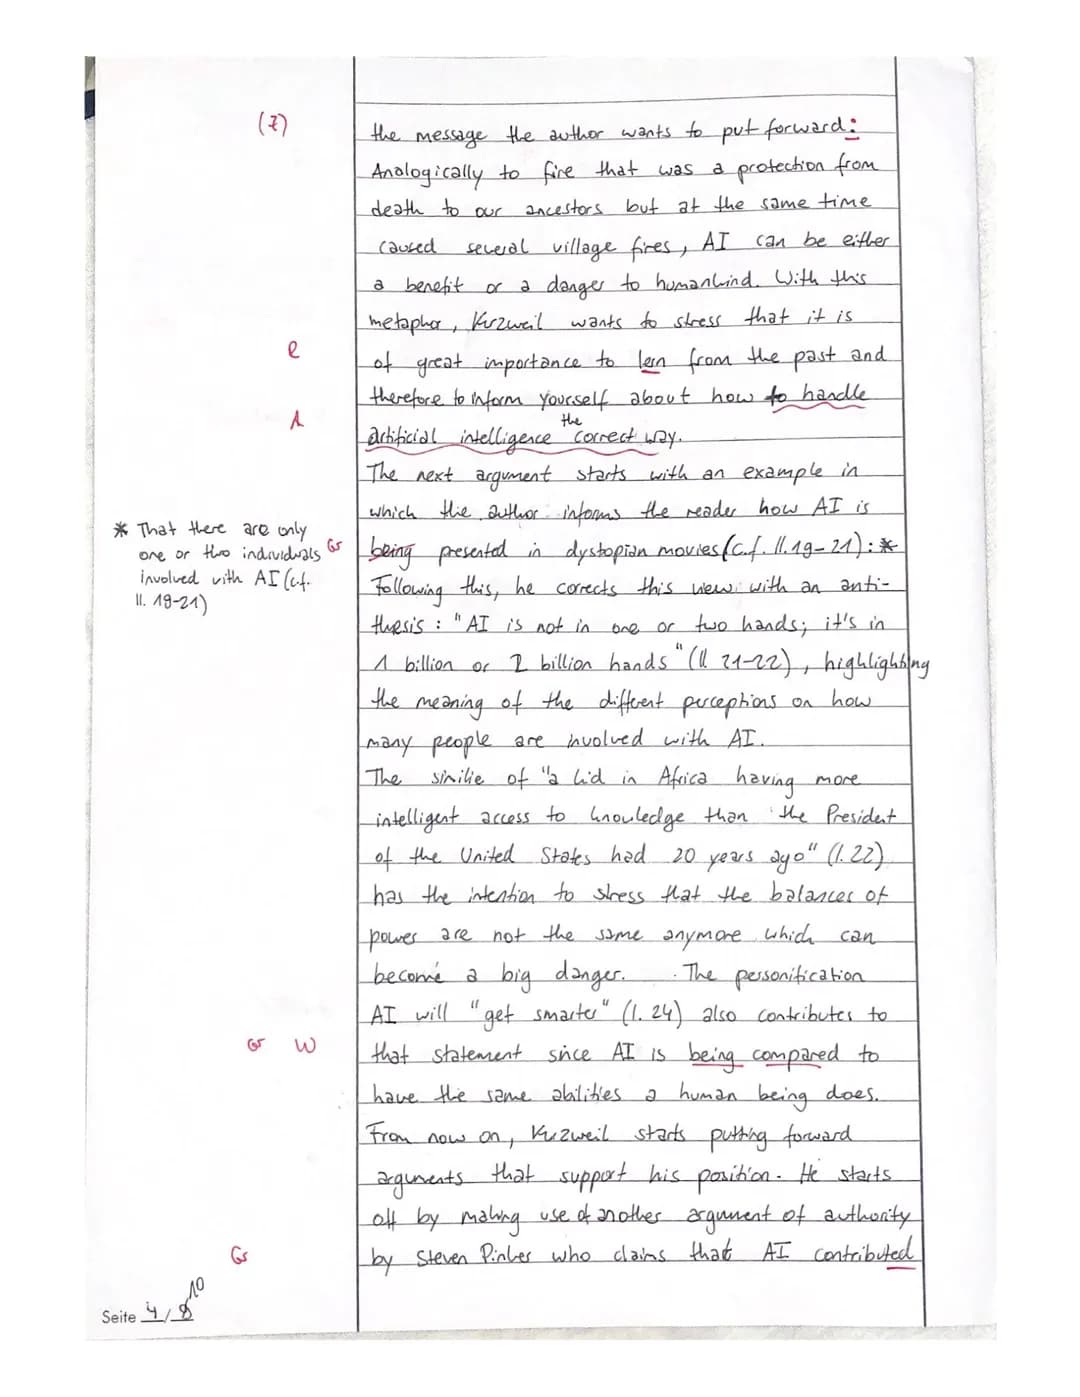 (Z)
the message the author wants to put forward:
Analogically to fire that was a protection from
death to our ancestors but at the same time
caused several village fires, AI can be either
a benefit or a danger to humankind. With this
metapher, Kurzweil wants to stress that it is
R
of great importance to lern from the past and
therefore to inform yourself about how to handle
A
the
artificial intelligence correct way.
The next argument starts with an example in
which the author informs the reader how AI is
* That there are only
one or two individuals
involved with AI (c.f.
ll. 19-21)
Gr
being presented in dystopian movies (c.f. ll. 19-21): *
Following this, he corrects this view with an anti-
thesis: "AI is not in one or two hands; it's in
1 billion or 2 billion hands" (ll. 21-22), highlighting
the meaning of the different perceptions on how
many people are involved with AI.
The similie of "a kid in Africa having more
intelligent access to knowledge than the President
of the United States had 20 years ago" (l. 22)
has the intention to stress that the balances of
power are not the same anymore which can
become a big danger. The personification
AI will "get smarter" (l. 24) also contributes to
Gr W
that statement since AI is being compared to
have the same abilities a human being does.
From now on, Kurzweil starts putting forward
arguments that support his position. He starts
off by making use of another argument of authority
Gr
by Steven Pinker who claims that AI contributed
Seite 4 / 8 10